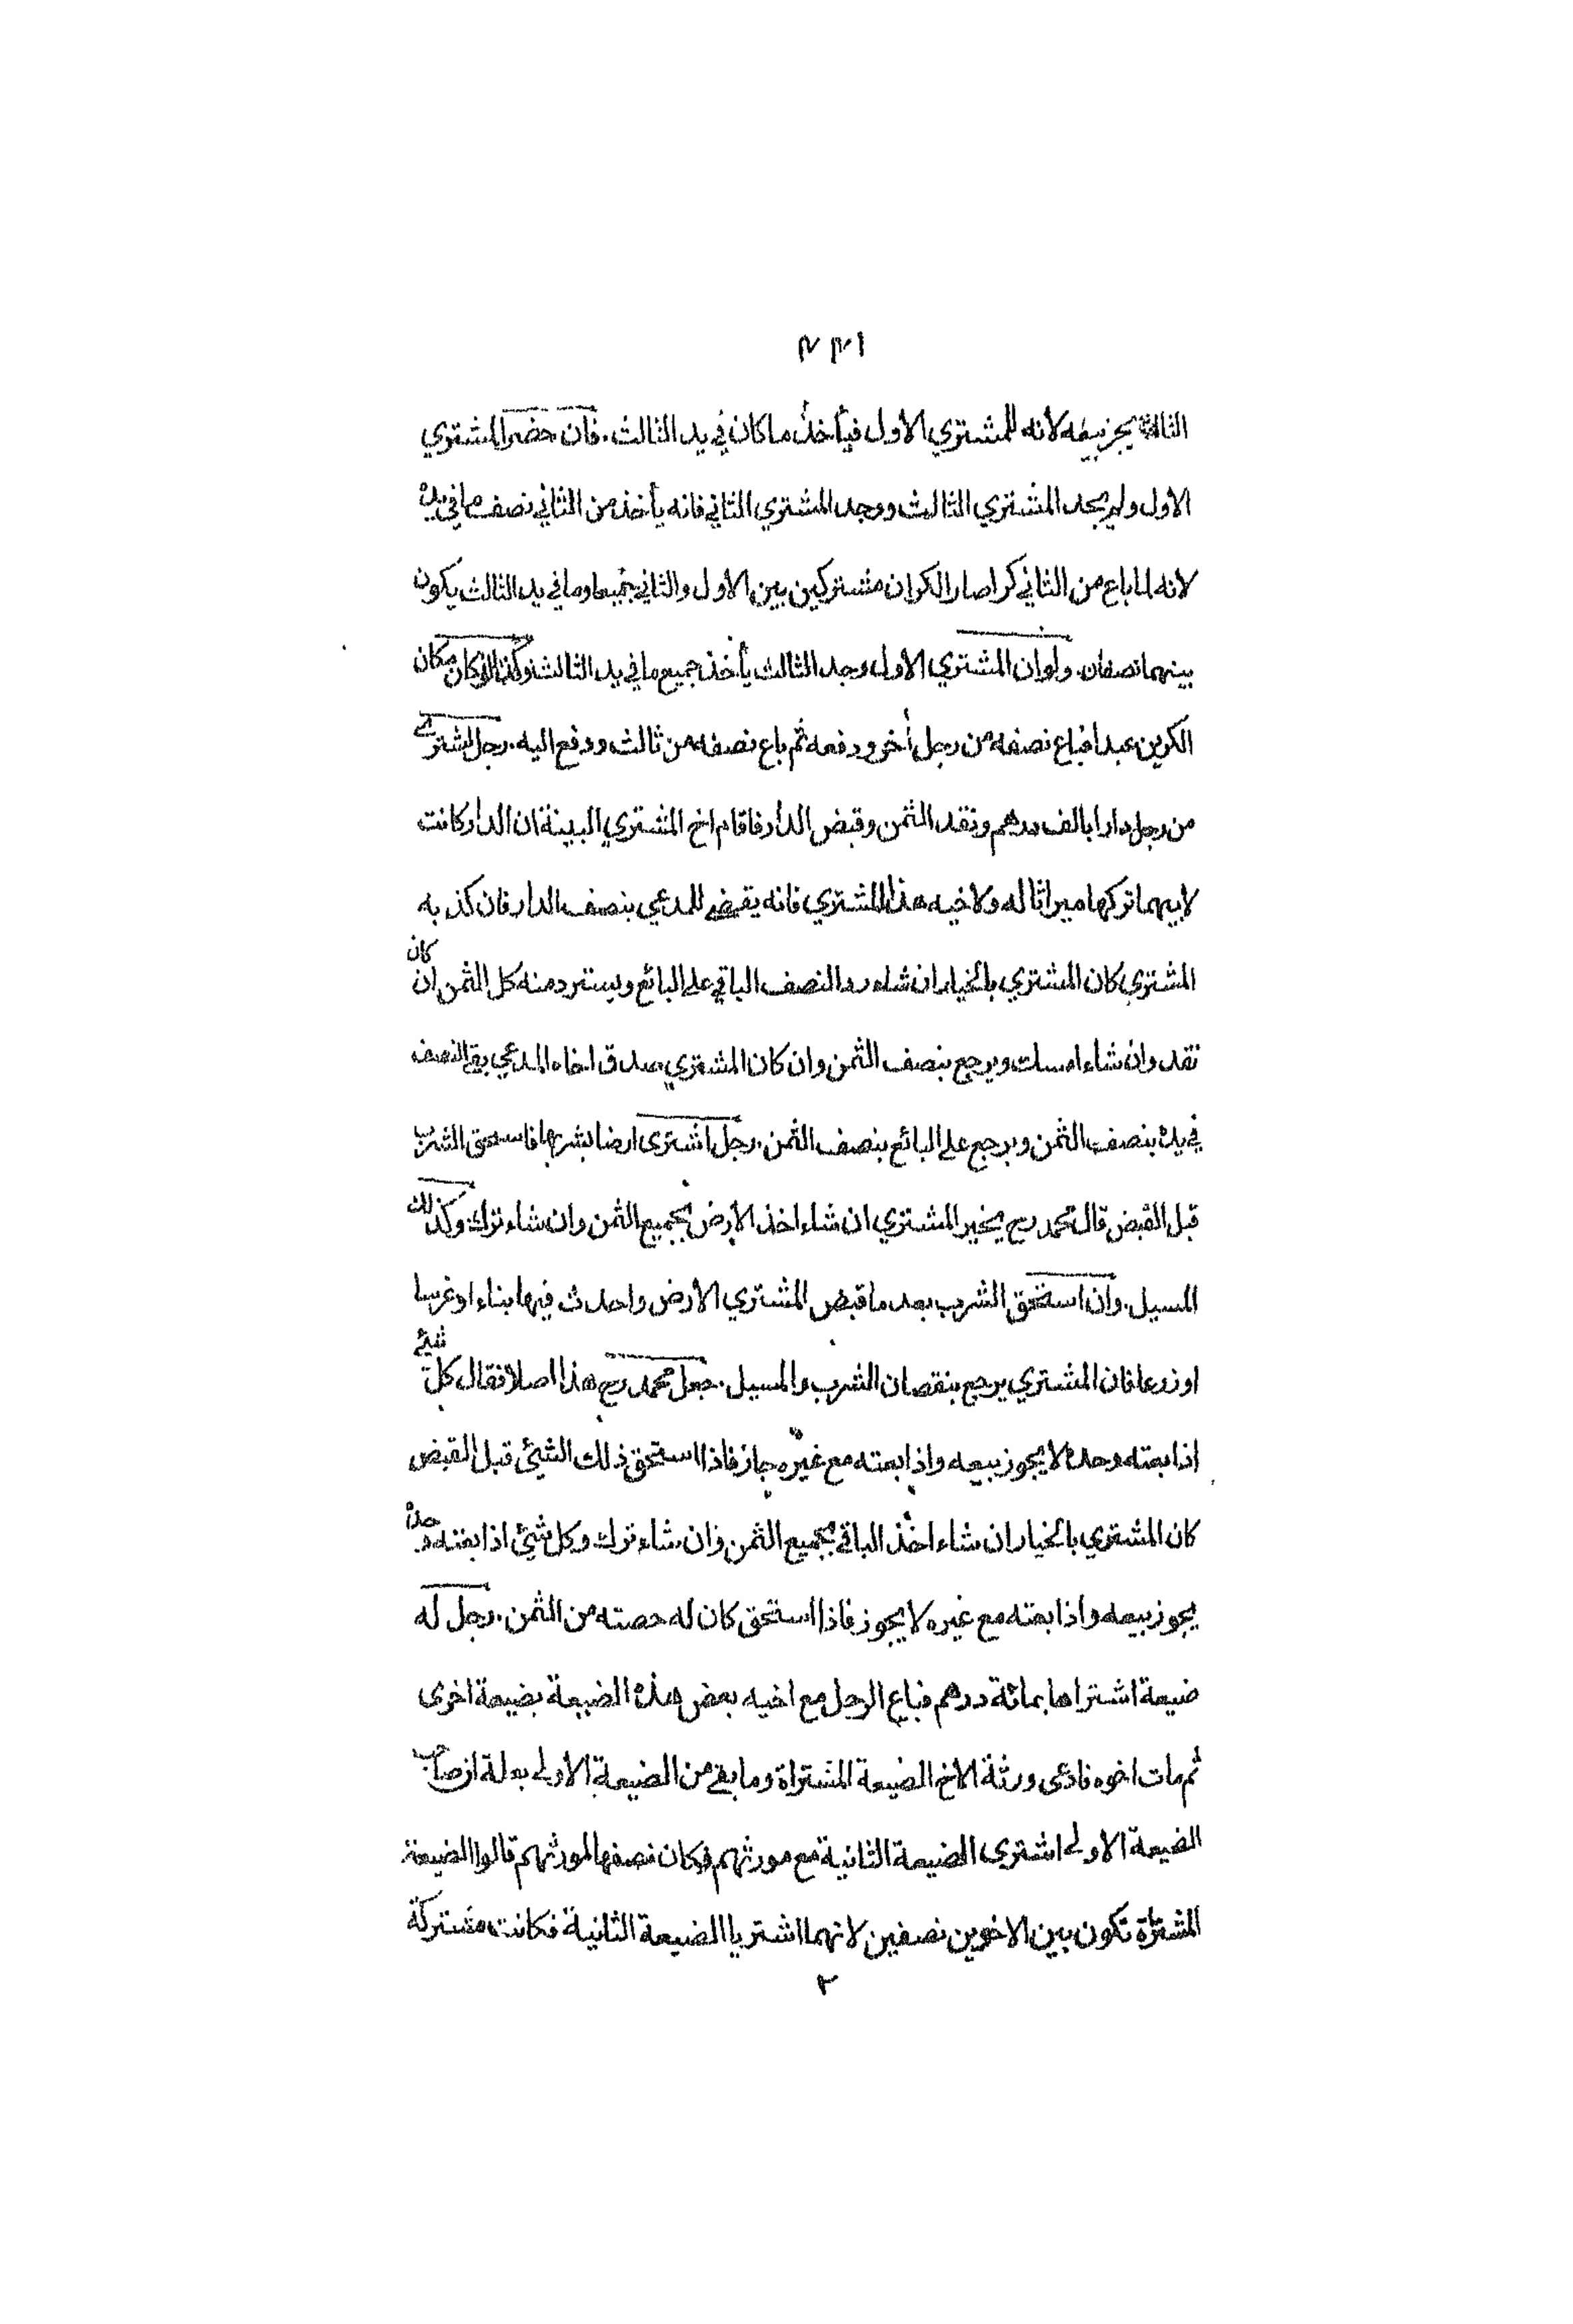 الثالث لم يجز بيعه لانه للمشتري الاول فيأخذ ما كان في يد الثالث. فان حضر المشتري
الاول ولم يجد المشتري الثالث ووجد المشتري الثاني فانه يأخذ من الثاني نصف ما في يده
لانه لما باع من الثاني كرا صار الكران مشتركين بين الاول والثاني جميعا وما في يد الثالث يكون
بينهما نصفان. ولو ان المشتري الاول وجد الثالث يأخذ جميع ما في يد الثالث وكذا لو كان مكان
الكرين عبد افباع نصفه من رجل أخر ودفعه ثم باع نصفه من ثالث ودفع اليه. رجل اشترى
من رجل دارا بالف درهم ونقد الثمن وقبض الدار فاقام اخ المشتري البينة ان الدار كانت
لابيهما تركها ميراثا له ولاخيه هذا المشتري فانه يقضي للمدعي بنصف الدار فان كذبه
المشتري كان المشتري بالخيار ان شاء رد النصف الباقي على البائع ويسترد منه كل الثمن ان كان
نقد وان شاء امسك ويرجع بنصف الثمن وان كان المشتري صدق اخاه المدعي بقي النصف
في يده بنصف الثمن ويرجع على البائع بنصف الثمن. رجل اشترى ارضا بشربها فاستحق الشرب
قبل القبض قال محمد رح يخير المشتري ان شاء اخذ الارض بجميع الثمن وان شاء ترك وكذلك
المسيل. وان استحق الشرب بعد ما قبض المشتري الارض واحدث فيها بناء او غرسا
او زرعا فان المشتري يرجع بنقصان الشرب والمسيل. جعل محمد رح هذا اصلا فقال كل شيئ
اذا بعته وحده لا يجوز بيعه واذا بعته مع غيره جاز فاذا استحق ذلك الشيئ قبل القبض
كان المشتري بالخيار ان شاء اخذ الباقي بجميع الثمن وان شاء ترك وكل شيئ اذا بعته وحده
يجوز بيعه واذا بعته مع غيره لا يجوز فاذا استحق كان له حصته من الثمن. رجل له
ضيعة اشتراها بمائة درهم فباع الرجل مع اخيه بعض هذه الضيعة بضيعة اخرى
ثم مات اخوه فادعى ورثة الاخ الضيعة المشتراة وما بقي من الضيعة الاولى بعلة ان صاحب
الضيعة الاولى اشترى الضيعة الثانية مع مورثهم فكان نصفها لمورثهم قالوا الضيعة
المشتراة تكون بين الاخوين نصفين لانهما اشتريا الضيعة الثانية فكانت مشتركة
٢